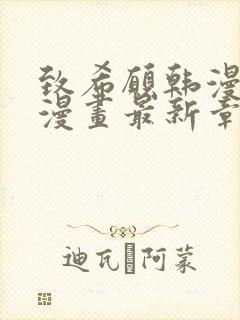 致希願韩漫
漫畫最新章
迪瓦 阿蒙